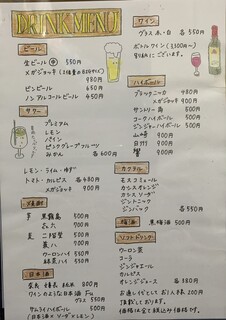 DRINK MENU
ビール
生ビール ㊥ 550円
メガジョッキ
950円
ビンビール 650円
ノンアルコールビール 450円
サワー
プレミアム
レモン
パイン
ピンクグレープフルーツ
みかん 各600円
レモン・ライム・ゆず
トマト・カルピス 各480円
メガジョッキ 900円
焼酎
芋 黒霧島 500円
700円
麦 二階堂 500円
500円
ウーロンハイ 500円
緑茶ハイ 550円
日本酒
800円
ワインのような日本酒
グラス 550円
サムライハイボール 500円
(日本酒×ソーダ×レモン)
ワイン
グラス 赤・白 各550円
ボトルワイン (3300〜)
別紙にございます。
ハイボール
ブラックニッカ 480円
メガジョッキ 900円
サントリー角 500円
コークハイボール 500円
ジンジャーハイボール 500円
山崎 900円
白州 900円
響 900円
カクテル
モスコミュール
カシスオレンジ
カシスソーダ
ジントニック
ジンバック 各550円
梅酒 黒梅酒 500円
ソフトドリンク
ウーロン茶
コーラ
ジンジャエール
カルピス
オレンジジュース 各380円
お通しとしてお一人様 200円
頂戴しております。
価格は全て税込み価格です。